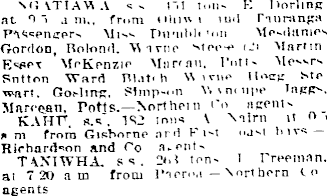 NGATIAWA s.s. 451 tons E Dorling
at 9.5 a.m., from Ohiwa and Tauranga
Passengers Miss Mesdames
Gordon, Boland, Wayne Martin
Essex McKenzie Marceau, Potts Messrs
Sutton Ward Blatch Wayne Hogg Ste
wart, Gosling, Simpson Jaggs,
Marceau, Potts.—Northern Co agents
KAHU, s.s., 182 tons A Nairn at
a m from Gisborne and East Coast bays—
Richardson and Co agents
TANIWHA, s s, 263 tons J Freeman,
at 7 20 a m from Paeroa—Northern Co
agents